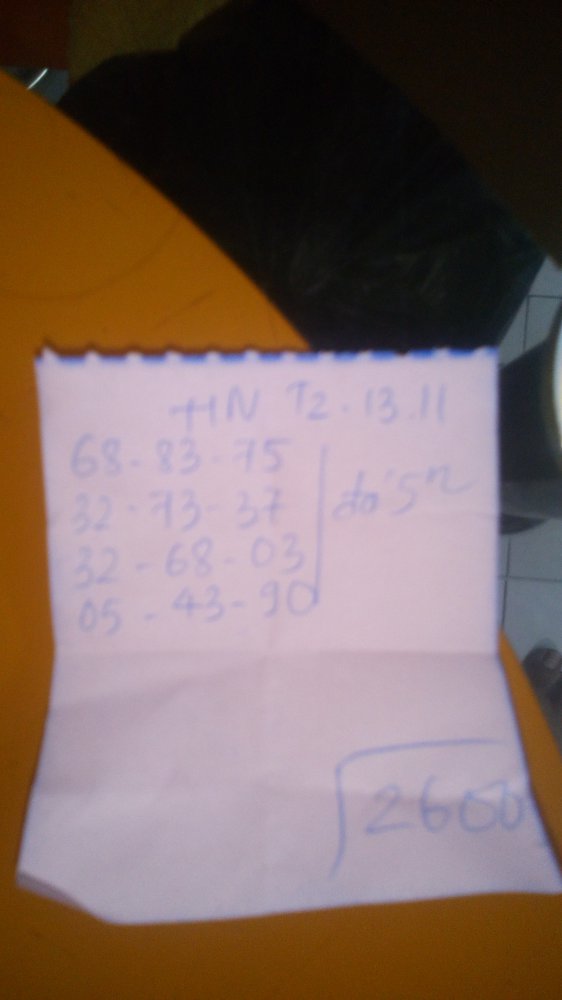 HN T2.13.11
68-83-75
32-73-37
32-68-03
05-43-90
đá 5n
2600